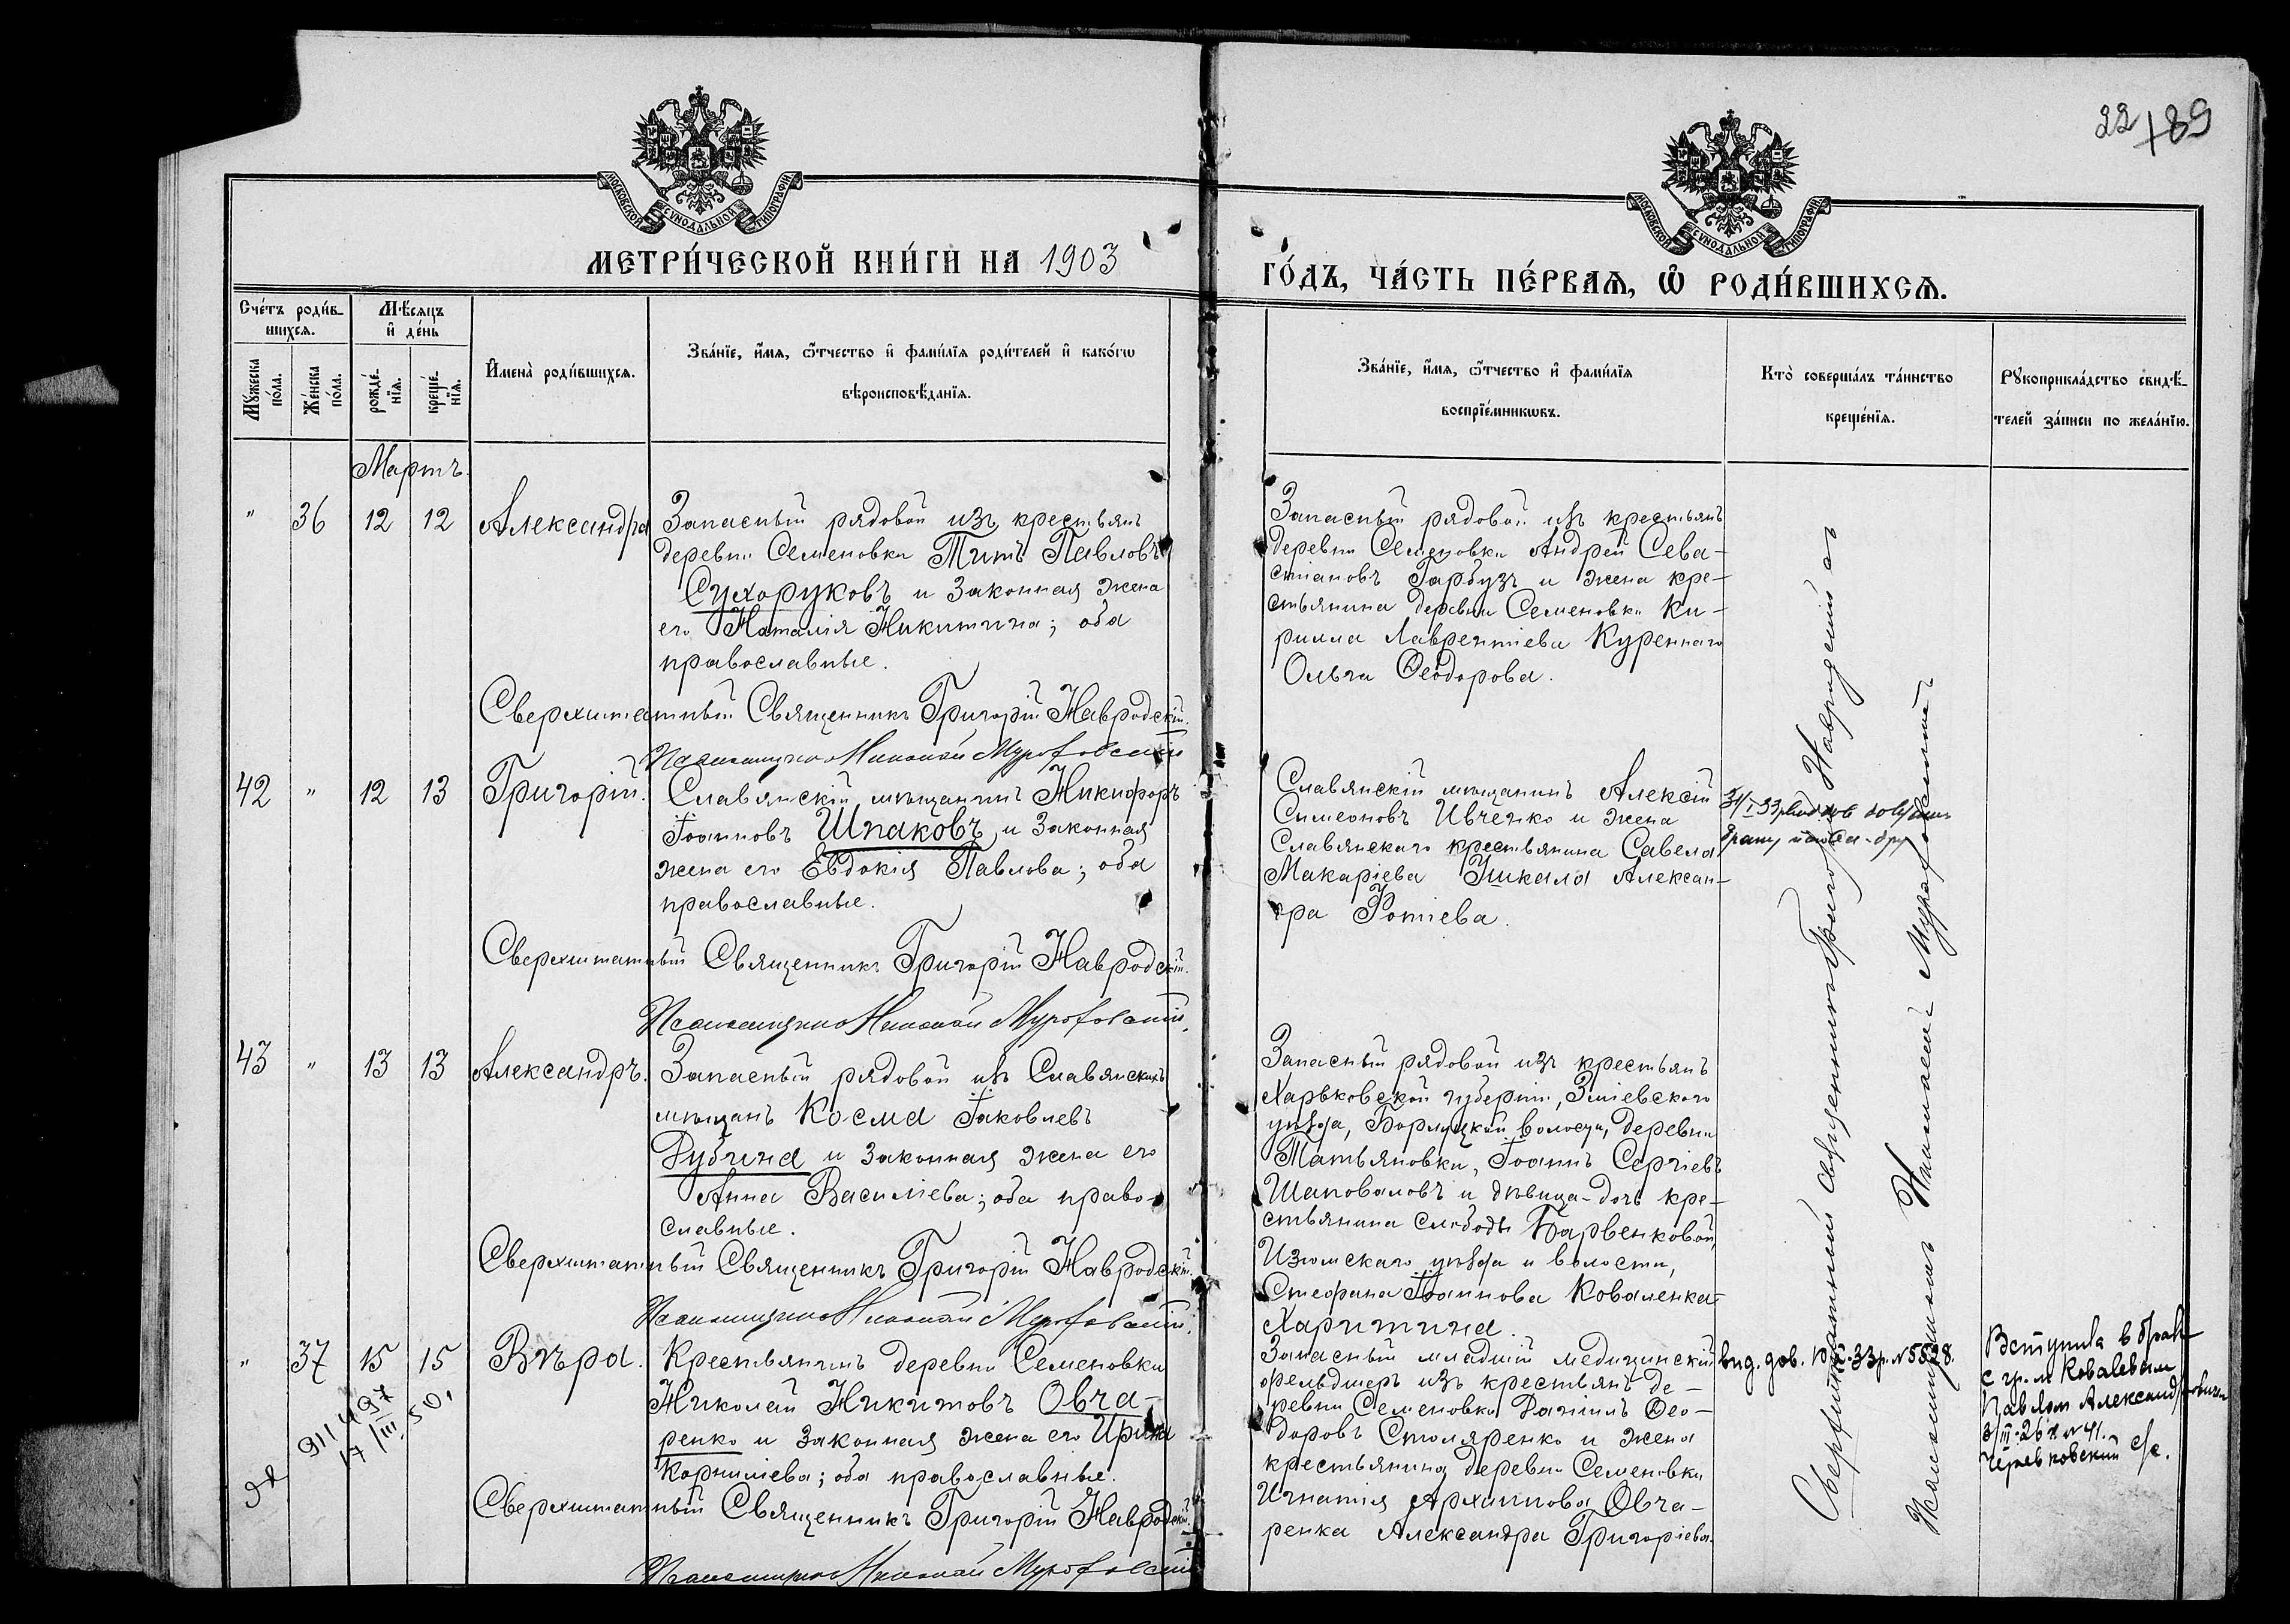 22 189
МОСКОВСКОЙ СѴНОДАЛЬНОЙ ТИПОГРАФІИ
МОСКОВСКОЙ СѴНОДАЛЬНОЙ ТИПОГРАФІИ
МЕТРИ́ЧЕСКОЙ КНИ́ГИ НА 1903
ГО́ДЪ, ЧА́СТЬ ПЕ́РВАѦ, Ѡ҆ РОДИ́ВШИХСѦ.
Сче́тъ роди́в-
шихсѧ.
Мꙋ́жеска по́ла.
Же́нска по́ла.
Мѣ́сѧцъ
и҆ де́нь
рожде́-
нїѧ.
креще́-
нїѧ.
И҆мена̀ роди́вшихсѧ.
Зва́нїе, и҆́мѧ, ѻ҆́тчество и҆ фами́лїѧ роди́телей и҆ како́гѡ
вѣроисповѣ́данїѧ.
Зва́нїе, и҆́мѧ, ѻ҆́тчество и҆ фами́лїѧ
воспрїе́мникѡвъ.
Кто̀ соверша́лъ та́инство
креще́нїѧ.
Рꙋкоприкла́дство свидѣ́-
телей за́писи по жела́нїю.
Мартъ.
" 36 12 12 Александра
Запасный рядовой изъ крестьянъ
деревни Семеновки Титъ Павловъ
Сухоруковъ и законная жена
его Наталія Никитина; оба
православные.
Сверхштатный Священникъ Григорій Навродскій.
Псаломщикъ Николай
Запасный рядовой изъ крестьянъ
деревни Семеновки Андрей Сева-
стіановъ Гарбузъ и жена кре-
стьянина деревни Семеновки Ки-
рилла Лаврентіева Куреннаго
Ольга Ѳеодорова.
42 " 12 13 Григорій.
Славянскій мѣщанинъ Никифоръ
Іоанновъ Шпаковъ и законная
жена его Евдокія Павлова; оба
православные.
Сверхштатный Священникъ Григорій Навродскій.
Псаломщикъ Николай
Славянскій мѣщанинъ Алексій
Симеоновъ Ивченко и жена
Славянскаго крестьянина Савела
Макаріева Шкала Алексан-
дра Фотіева.
43 " 13 13 Александръ.
Запасный рядовой изъ Славянскихъ
мѣщанъ Косма Іаковлевъ
Дубина и законная жена его
Анна Василіева; оба право-
славные.
Сверхштатный Священникъ Григорій Навродскій.
Псаломщикъ Николай
Запасный рядовой изъ крестьянъ
Харьковской губерніи, Зміевского
уѣзда, волости, деревни
Татьяновки, Іоаннъ Сергіевъ
Шаповаловъ и дѣвица-дочь кре-
стьянина слободы Барвенковой,
Изюмскаго уѣзда и волости,
Стефана Іоаннова Коваленка-
Харитина.
" 37 15 15 Вѣра.
Крестьянинъ деревни Семеновки
Николай Никитовъ Овча-
ренко и законная жена его Ирина
Корнилиева; оба православные.
Сверхштатный Священникъ Григорій Навродскій.
Псаломщикъ Николай
Запасный младшій медицинскій
фельдшеръ изъ крестьянъ де-
ревни Семеновки Даніилъ Ѳео-
доровъ Столяренко и жена
крестьянина деревни Семеновки
Игнатія Архиппова Овча-
ренка Александра Григоріева.
вид. дов. 33р. N 5528.
Вступила в брак
с гр-м Ковалевым
Павлом Александровичем
N 41.
с/с.
17/III 50.
Сверхштатный священникъ Григорій Навродскій
Псаломщикъ Николай